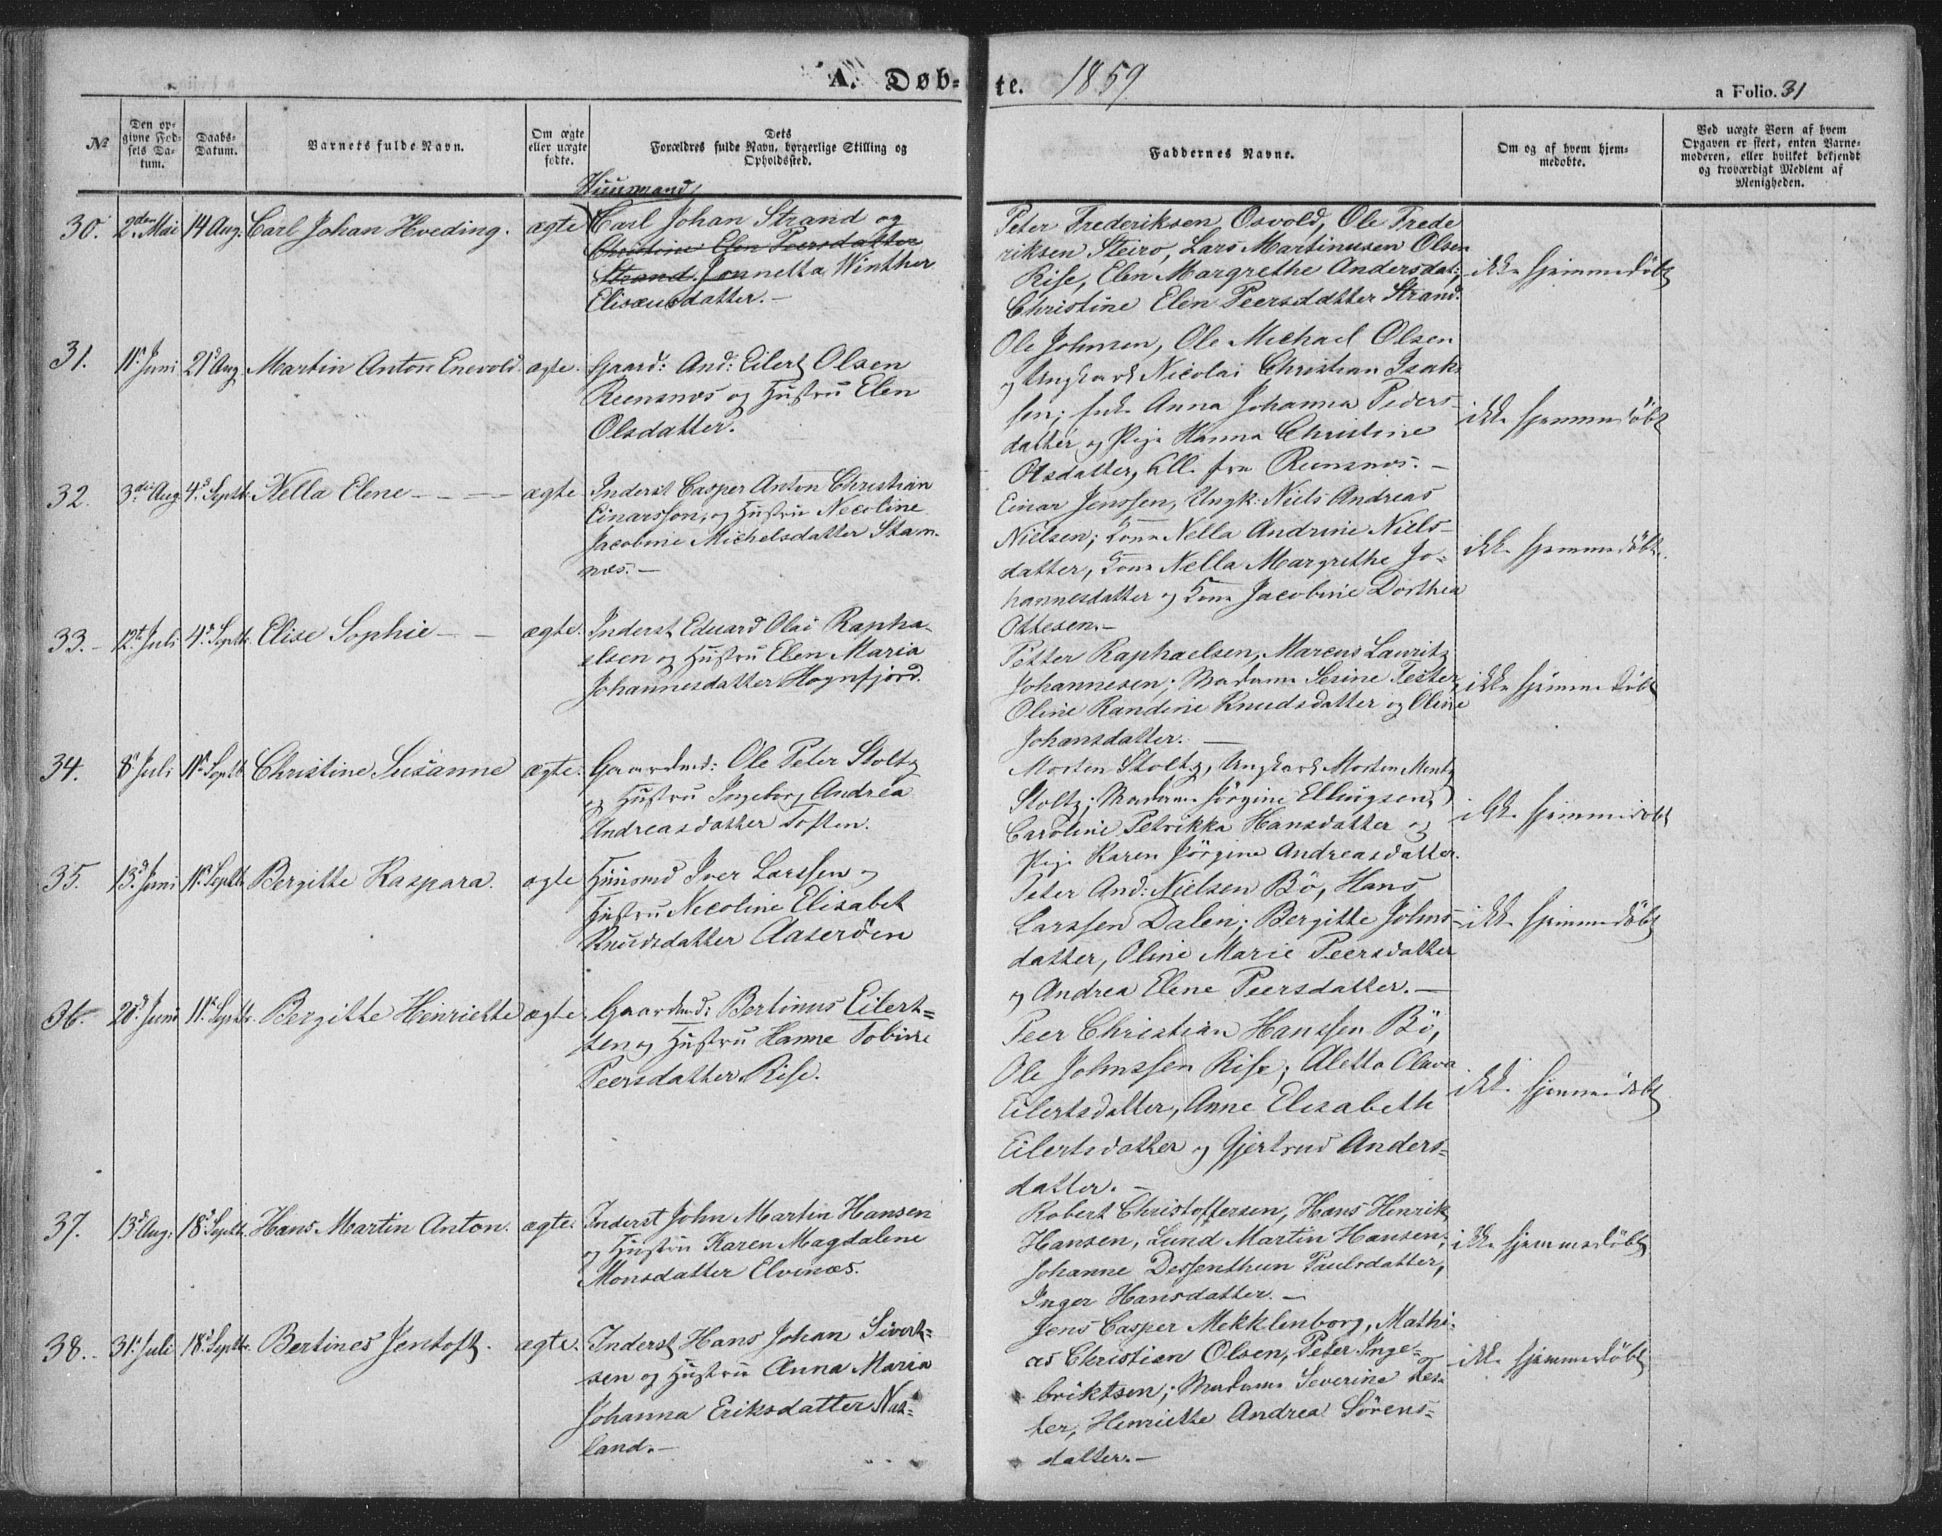 A. Døb-
te. 1859.
a Folio. 31
№
Den op-
givne Fød-
sels Da-
tum.
Daabs-
Datum.
Barnets fulde Navn.
Om ægte
eller uægte
fødte.
Dets
Forældres fulde Navn, borgerlige Stilling og
Opholdssted.
Faddernes Navne.
Om og af hvem hjem-
medøbte.
Ved uægte Børn af hvem
Opgaven er skeet, enten Barne-
moderen, eller hvilket bekjendt
og troværdigt Medlem af
Menigheden.
30. 2den Mai 14 Aug. Carl Johan Hveding. ægte
Huusmand
Carl Johan Strand og
Christine Elen Peersdatter
Strand. Jonnetta Winther
Elisæusdatter.-
Peter Frederiksen Osvold, Ole Frede
riksen Steiro, Lars Martinusen Olsen
Rise, Elen Margrethe Andersdat:,
Christine Elen Peersdatter Strand.
ikke hjemmedøbt
31. 11 Juni 21 Aug. Martin Anton Enevold. ægte.
Gaard: And: Eilert Olsen
Reensnæs og Hustru Elen
Olsdatter.
Ole Johnsen, Ole Michael Olsen
og Ungkarl Nicolai Christian Isak-
sen; Enke Anna Johanna Peders-
datter og Pige Hanna Christine
Olsdatter, All. fra Reensnæs.-
ikke hjemmedøbt
32. 3die Aug 4 Septbr. Nella Elene - - - ægte
Inderst Casper Anton Christian
Einarssøn, og Hustru Necoline
Jacobine Michelsdatter Stam-
næs.-
Einar Jenssen, Ungk: Niels Andreas
Nielsen; Kone Nella Andrine Niels-
datter, Kone Nella Margrethe Jo-
hannesdatter og Kone Jacobine Dorthea
Ottesen.-
ikke hjemmedøbt.
33.- 12t Juli 4 Septbr. Elise Sophie - - ægte.
Inderst Eduard Olai Rapha-
elsen og Hustru Elen Maria
Johannesdatter Hognfjord.
Petter Raphaelsen, Marcus Lauritz
Johannesen; Madame Sesine Tester,
Oline Randine Knudsdatter og Oline
Johansdatter.-
ikke hjemmedøbt
34. 8 Juli 11 Septbr Christine Susanne ægte.
Gaardmd: Ole Peter Stoltz
og Hustru Ingeborg Andrea
Andreasdatter Toften.
Morten Stoltz, Ungkarl Morten Mentz
Stoltz; Madame Jørgine Ellingsen,
Caroline Petrikka Hansdatter og
Pige Karen Jørgine Andreasdatter.
ikke hjemmedøbt
35. 13 Juni 11 Septbr Bergitte Kaspara. ægte
Huusmd Iver Larssen og
Hustru Necoline Elisabet
Knudsdatter Aaserøen
Peter And: Nielsen Bö, Hans
Larssen Dalen; Bergitte Johns-
datter, Oline Marie Peersdatter
og Andrea Elene Peersdatter.-
ikke hjemmedøbt
36. 20 Juni 11 Septbr. Bergitte Henriette ægte.
Gaardmd: Bertinus Eilert-
sen og Hustru Hanne Tobine
Peersdatter Rise.
Peer Christian Hanssen Bö,
Ole Johnssen Rise; Aletta Olava
Eilertsdatter, Anne Elisabeth
Eilertsdatter og Gjertrud Anders-
datter.-
ikke hjemmedøbt
37. 13 Aug: 18 Septbr. Hans Martin Anton. ægte.
Inderst John Martin Hansen
og Hustru Karen Magdalene
Monsdatter Elvenæs.
Robert Christoffersen, Hans Henrik
Hansen, Lund Martin Hansen;
Johanne Dessenthun Paulsdatter,
Inger Hansdatter.-
ikke hjemmedøbt
38. 31 Juli 18 Septbr. Bertines Jentoft. ægte.
Inderst Hans Johan Sivert-
sen og Hustru Anna Maria
Johanna Eriksdatter Nat-
land.-
Jens Casper Mekklenborg, Mathi-
as Christian Olsen, Peter Inge-
briktsen; Madame Severine Tes-
ter, Henriette Andrea Sörens-
datter.-
ikke hjemmedøbt